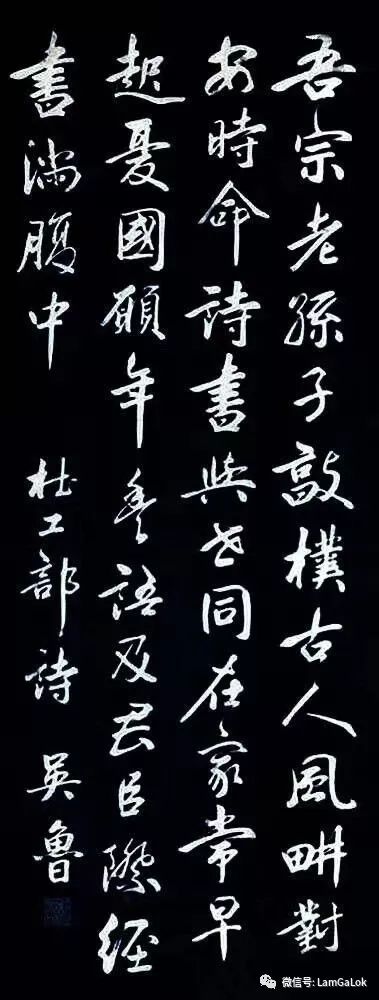 吾宗老孫子敦樸古人風畊對
安時命詩書與世同在家常早
起憂國願年豐語及君臣際經
書滿腹中
杜工部詩 吳魯
微信号: LamGaLok